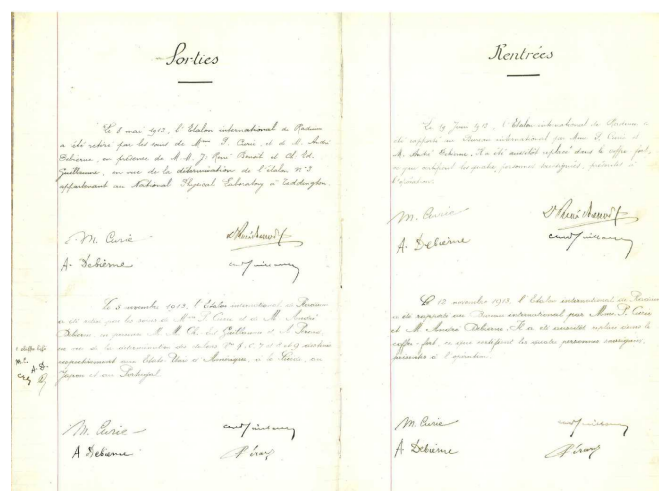 Sorties
Le 8 mai 1913, l'Etalon international de Radium
a été retiré par les soins de Mme P. Curie, et de M. André
Debierne, en présence de M. M. J. René Benoît et Ch. Ed.
Guillaume, en vue de la détermination de l'étalon n° 3
appartenant au National Physical Laboratory à Teddington.
M. Curie
A. Debierne
Le 5 novembre 1913, l'Etalon international de Radium
a été retiré par les soins de Mme P. Curie et de M. André
Debierne, en présence M. M. Ch. Ed. Guillaume et A. Pérard,
en vue de la détermination des étalons
respectivement aux Etats-Unis d'Amérique, à la
Japon et au Portugal.
M. Curie
A Debierne
Rentrées
Le 19 Juin 1913, l'Etalon international de Radium a
été rapporté au Bureau international par Mme P. Curie et
M. André Debierne. Il a été aussitôt replacé dans le coffre-fort,
ce que certifient les quatre personnes soussignées, présentes à
l'opération.
M. Curie
A. Debierne
Le 12 novembre 1913, l'Etalon international de Radium
a été rapporté au Bureau international par Mme P. Curie
et M. André Debierne. Il a été aussitôt replacé dans le
coffre-fort, ce que certifient les quatre personnes soussignées,
présentes à l'opération.
M. Curie
A Debierne